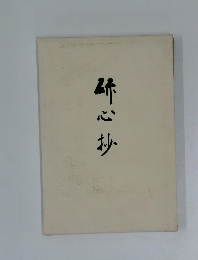 研心抄